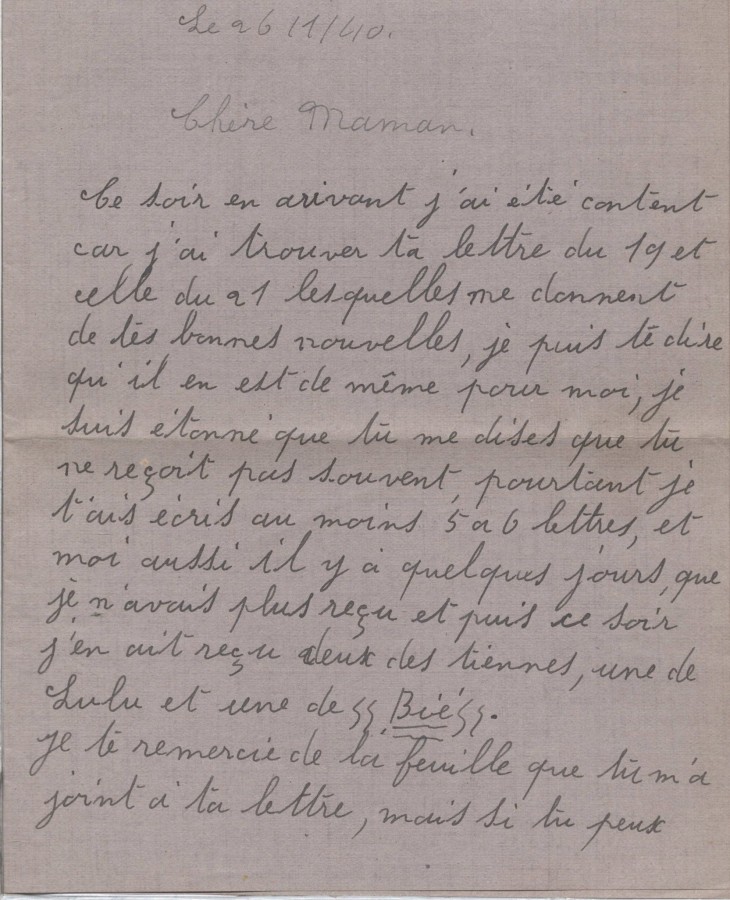 Le 26/1/40.
Chère Maman.
Ce soir en arivant j'ai étié content
car j'ai trouver ta lettre du 19 et
celle du 21 lesquelles me donnent
de tès bonnes nouvelles, je puis te dire
qu'il en est de même pour moi, je
suis étonné que tu me dises que tu
ne reçoit pas souvent, pourtant je
t'ais écris au moins 5 a 6 lettres, et
moi aussi il y a quelques jours, que
je n'avais plus reçu et puis ce soir
j'en ait reçu deux des tiennes, une de
Lulu et une de §§ Bié §§.
je te remercie de la feuille que tu m'a
joint a ta lettre, mais si tu peux